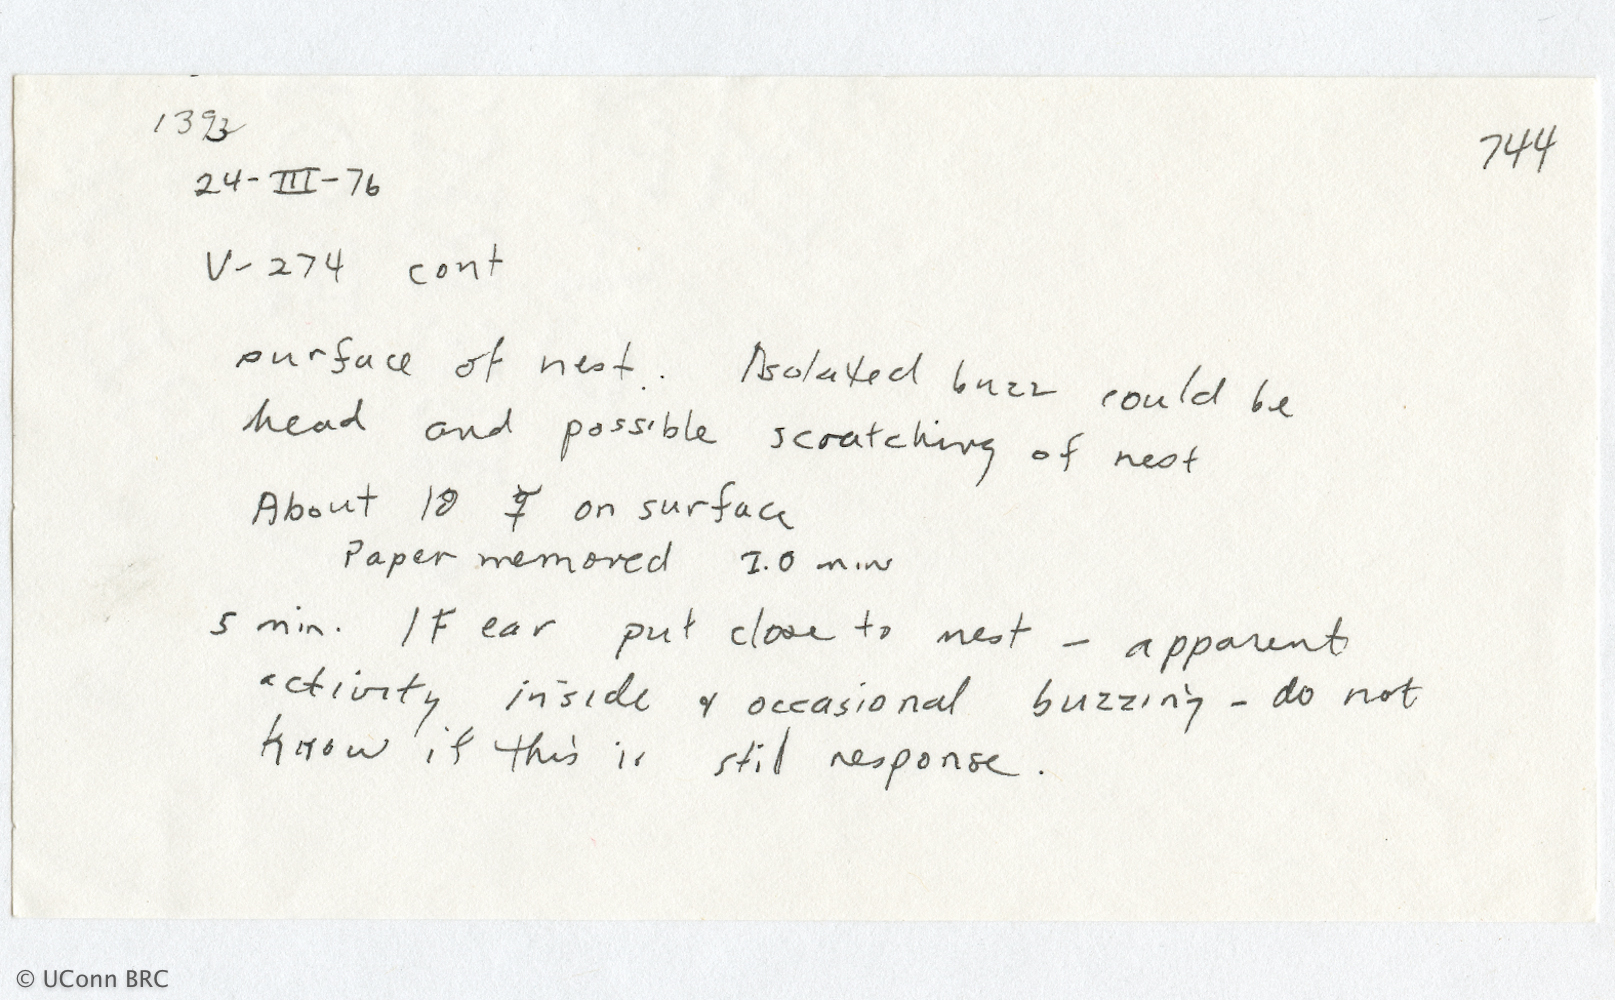 1393
744
24-III-76
V-274 cont
surface of nest. Isolated buzz could be
head and possible scratching of nest
About 10 on surface
Paper memored 1.0 min
5 min. IF ear put close to nest - apparent
activity inside & occasional buzzing - do not
know if this is still response.
© UConn BRC